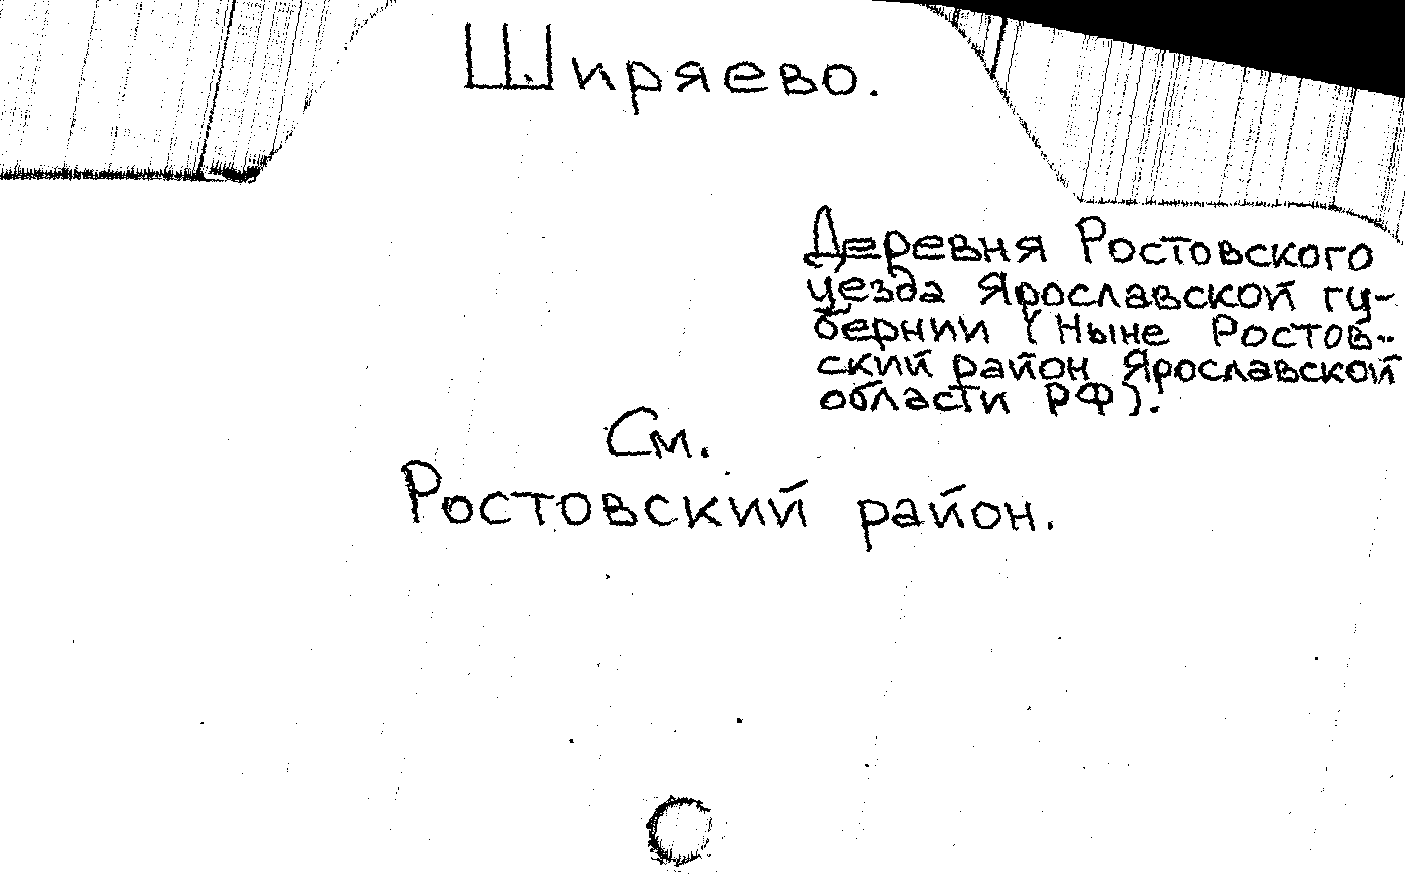 Ширяево.
Деревня Ростовского
уезда Ярославской гу-
бернии (Ныне Ростов-
ский район Ярославской
области РФ).
См.
Ростовский район.